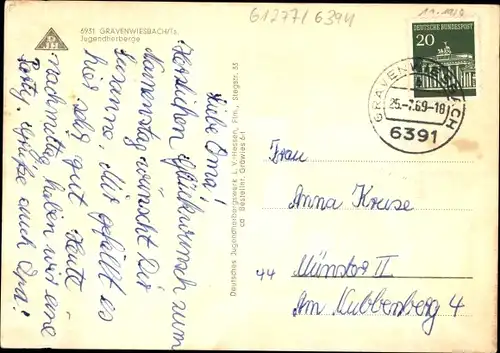 6931 GRÄVENWIESBACH/Ts.
Jugendherberge
Liebe Oma!
Herzlichen Glückwunsch zum
Namenstag wünscht Dir
Susanne. Mir gefällt es
hier sehr gut. Heute
nachmittag haben wir eine
Party. Grüße auch Opa!
Deutsches Jugendherbergswerk L. V. Hessen, Ffm., Stegstr. 33
Bestellnr. Gräwies 6-1
612771 6394
DEUTSCHE BUNDESPOST
20
GRÄVENWIESBACH
25.-7.69-18
6391
Frau
Anna Kruse
44 Münster II
Am Kubbenberg 4